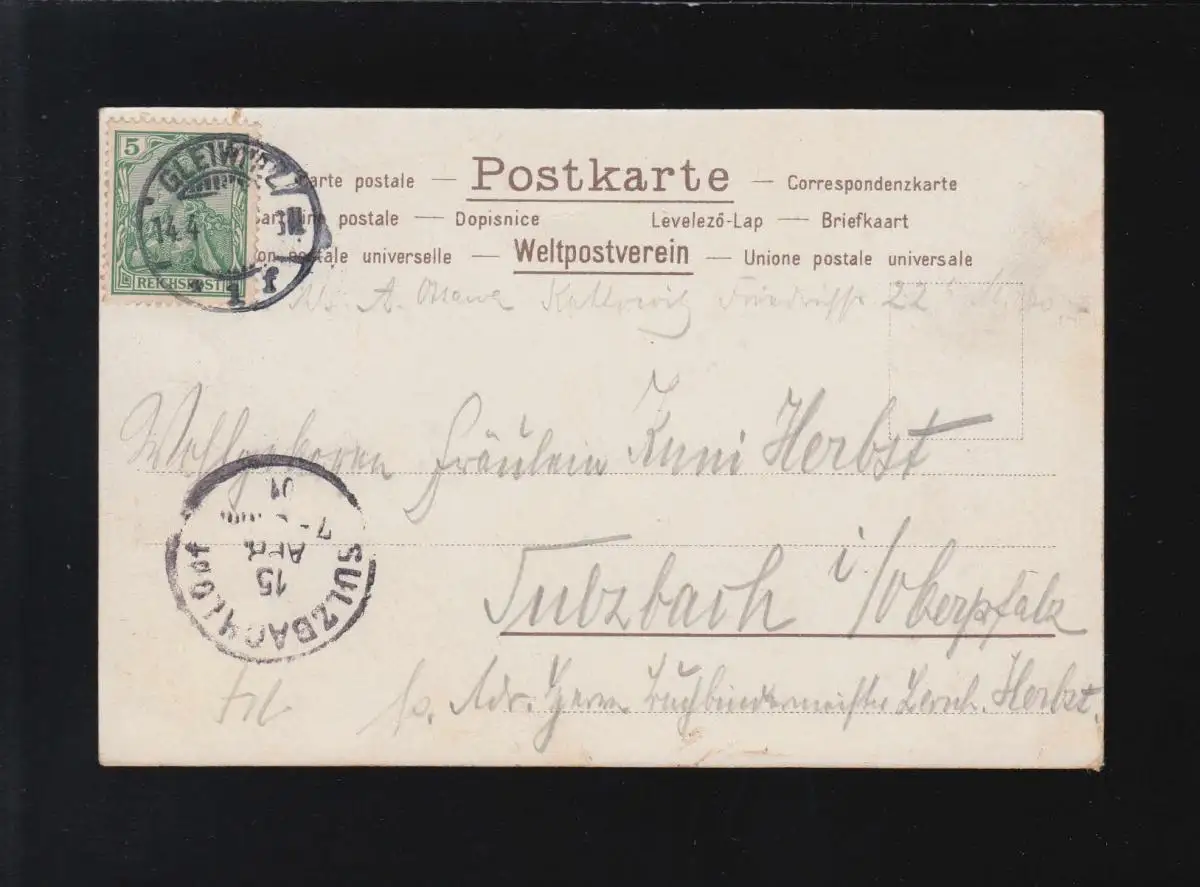 5
REICHSPOST
GLEIWITZ
14.4
* 1 f
Carte postale — Postkarte — Correspondenzkarte
postale — Dopisnice Levelező-Lap — Briefkaart
postale universelle — Weltpostverein — Unione postale universale
A. Kattowitz 22
Wohlgeboren Fräulein Kuni Herbst
Sulzbach i/Oberpfalz
Adr. Herrn Buchbindermeister Herbst.
SULZBACH
15
APR.
7-
01